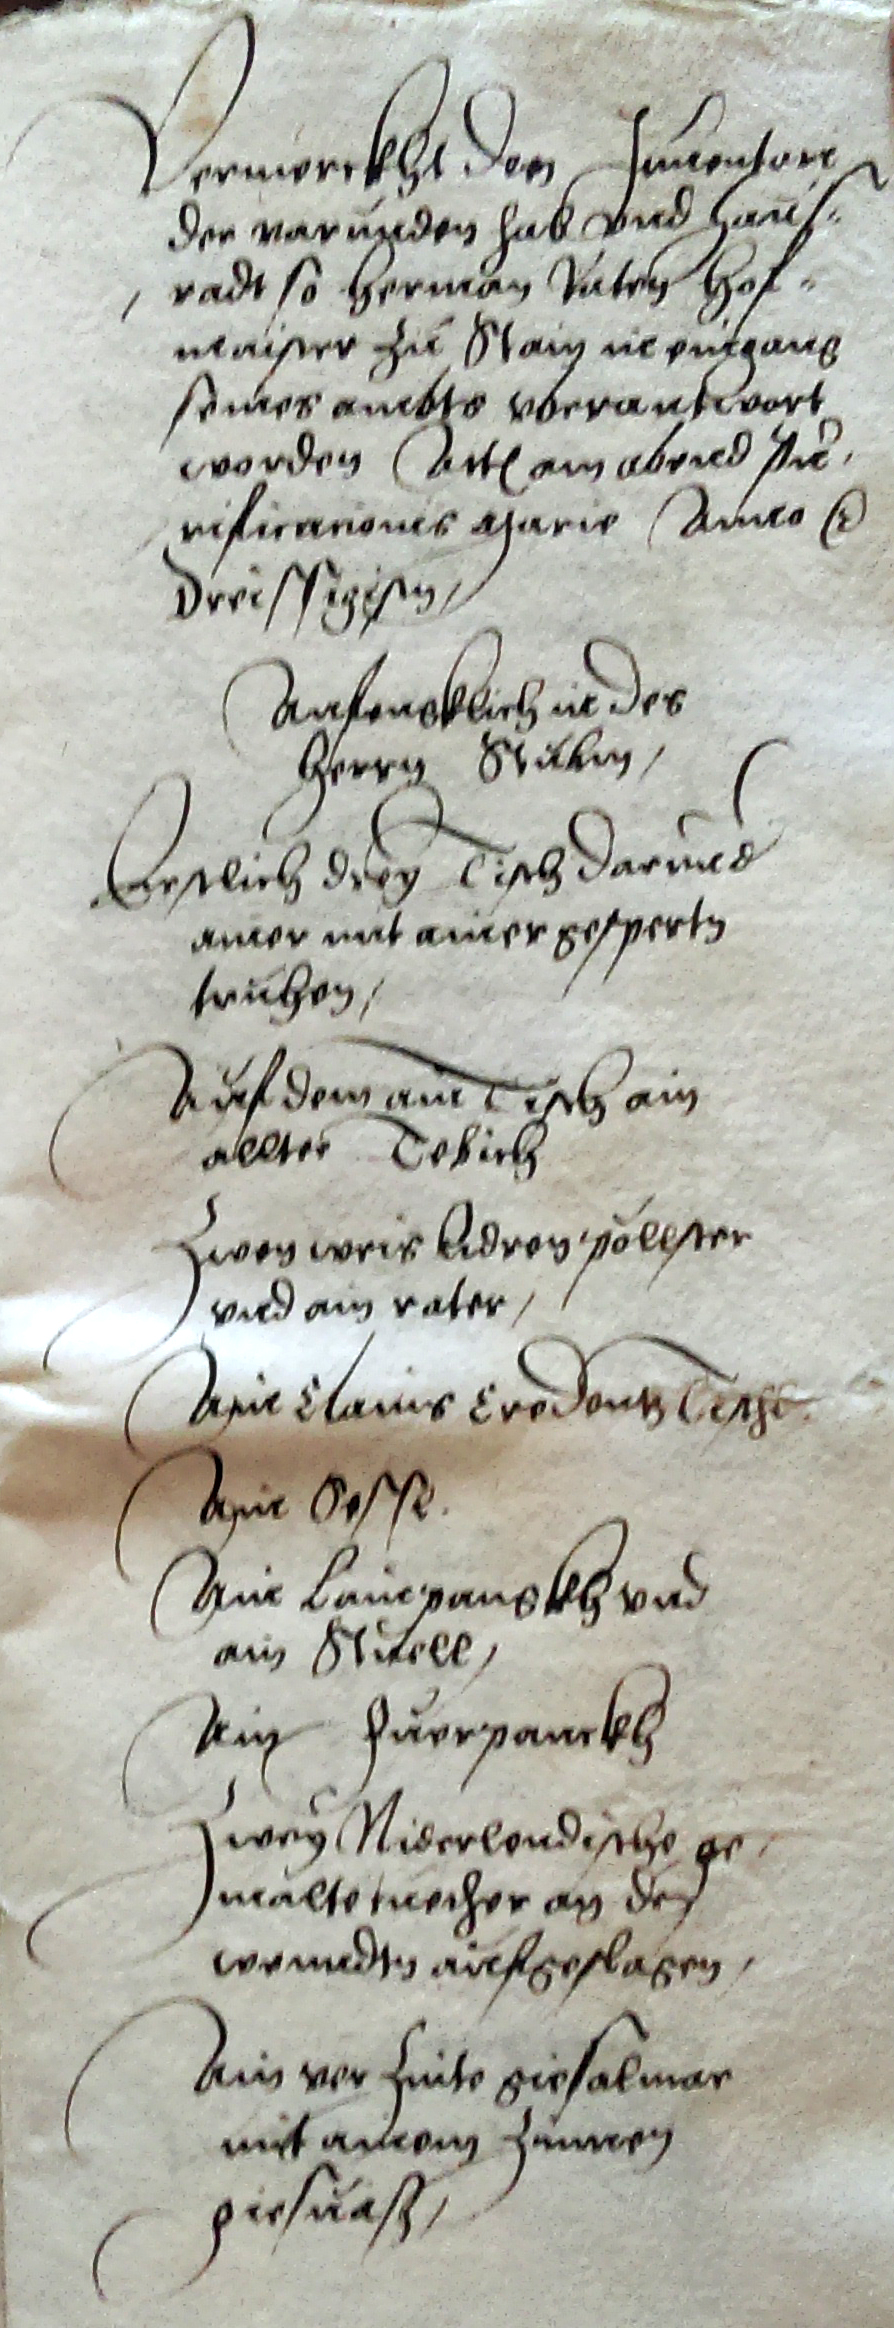 Vermerckht den Inuentari
der varunden hab vnd haus-
radt so Herman Hof-
maister zu Stain in eingang
seines ambts vberantwort
worden Actu am abend Pu-
rificationis Marie Anno
dreissigistn /
Anfengklich in des
Herrn Stuben /
Erstlich drey Tisch darund
ainer mit ainer gespertn
truhen /
Auf dem ain Tisch ain
allter Tebich
Zwen weis lidren pöllster
vnd ain roter /
Ain klains Credentz Tischl
Ain Sessl
Ain Lainpangkh vnd
ain Stuell /
Ain Fuerpanckh
Zwey Niderlendische ge-
malte tuecher an den
wendtn aufgeslagen /
Ain ver Zinte giesalmar
mit ainem Zinnen
giesuaß /